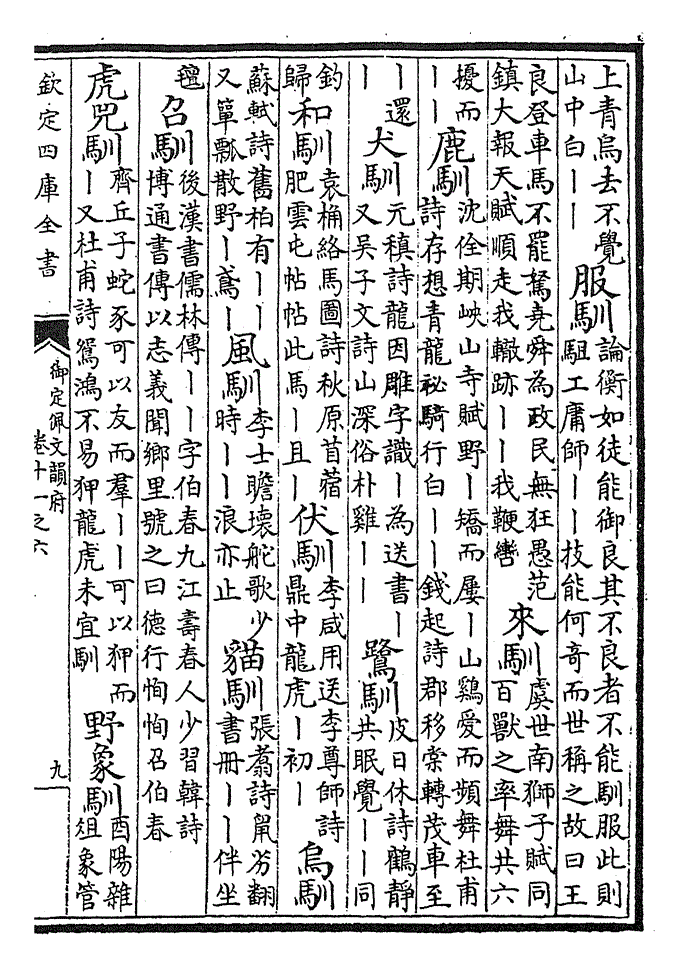 上青烏去不覺
山中白丨丨
服馴
論衡如徒能御良其不良者不能馴服此則
駔工庸師丨丨技能何奇而世稱之故曰王
良登車馬不罷駑堯舜為政民無狂愚范
鎮大報天賦順走我轍跡丨丨我鞭轡
來馴
虞世南獅子賦同
百獸之率舞共六
擾而
丨丨
鹿馴
沈佺期峽山寺賦野丨矯而屢丨山鷄愛而頻舞杜甫
詩存想青龍祕騎行白丨丨錢起詩郡移棠轉茂車至
丨還
丨
犬馴
元稹詩龍因雕字識丨為送書丨
又吳子文詩山深俗朴雞丨丨
鷺馴
皮日休詩鶴靜
共眠覺丨丨同
釣
歸
和馴
袁桷絡馬圖詩秋原苜蓿
肥雲屯帖帖此馬丨且丨
伏馴
李咸用送李尊師詩
鼎中龍虎丨初丨
烏馴
蘇軾詩舊柏有丨丨
又簞瓢散野丨鳶丨
風馴
李士瞻壞舵歌少
時丨丨浪亦止
貓馴
張翥詩鼠劣翻
書册丨丨伴坐
氊
召馴
後漢書儒林傳丨丨字伯春九江壽春人少習韓詩
博通書傳以志義聞鄉里號之曰德行恂恂召伯春
虎兕馴
齊丘子蛇豕可以友而羣丨丨可以狎而
丨又杜甫詩鴛鴻不易狎龍虎未宜馴
野象馴
酉陽雜
俎象管
欽定四庫全書
御定佩文韻府
卷十一之六
九